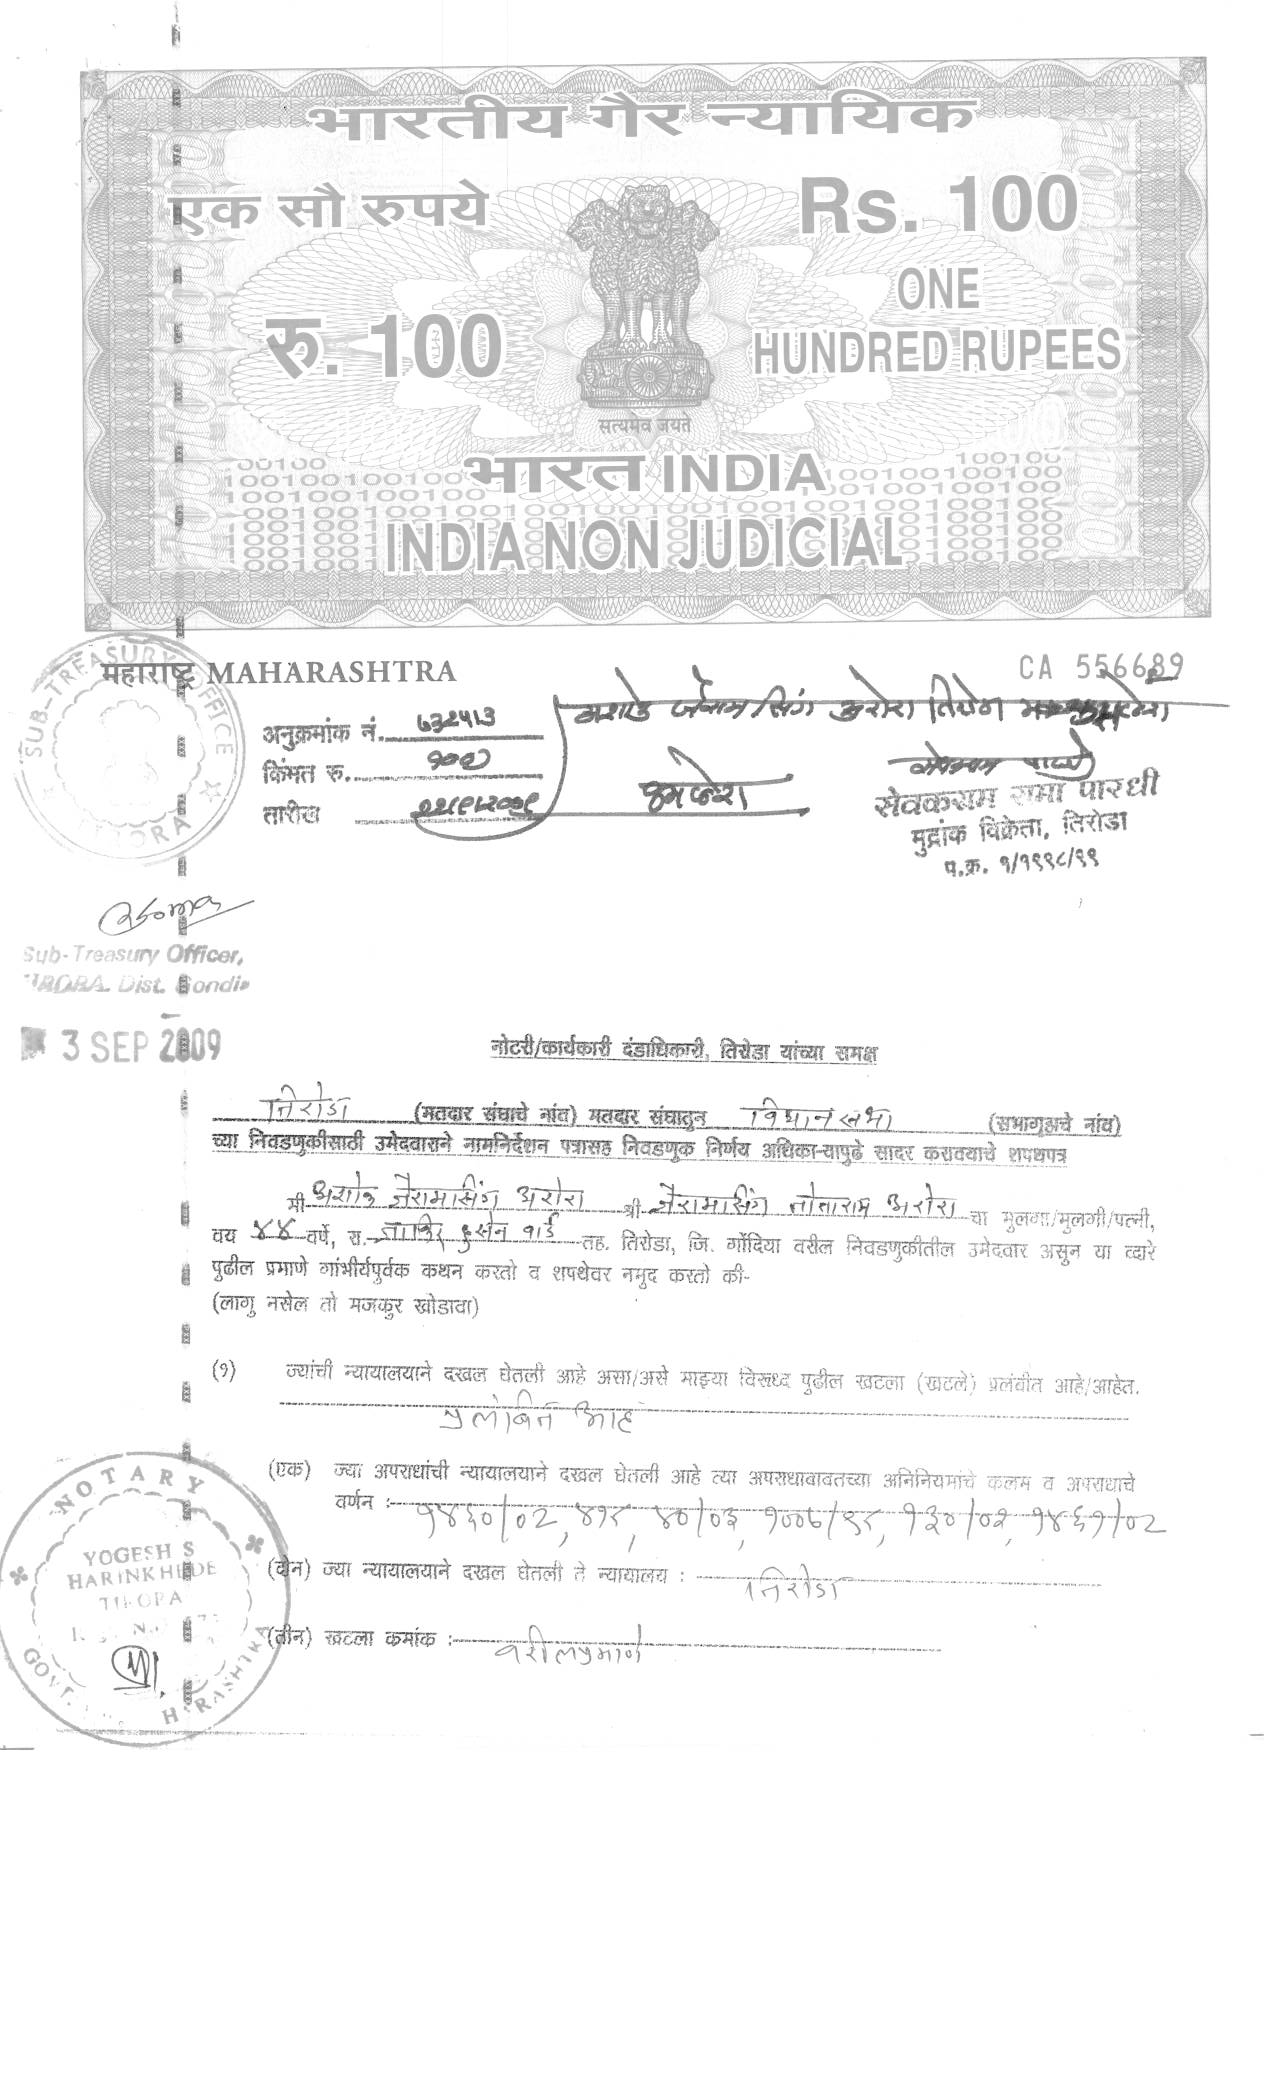 भारतीय गैर न्यायिक
एक सौ रुपये
Rs. 100
रु. 100
ONE
HUNDRED RUPEES
सत्यमेव जयते
भारत INDIA
INDIA NON JUDICIAL
महाराष्ट्र MAHARASHTRA
CA 556689
SUB-TREASURY OFFICE
अनुक्रमांक नं.
किंमत रु. १००
तारीख
सेवकराम रामा पारधी
मुद्रांक विक्रेता, तिरोडा
प.क्र. १/१९९८/९९
Sub-Treasury Officer,
Dist. Gondia
3 SEP 2009
नोटरी/कार्यकारी दंडाधिकारी, तिरोडा यांच्या समक्ष
तिरोडा (मतदार संघाचे नांव) मतदार संघातून विधानसभा (सभागृहाचे नांव)
च्या निवडणुकीसाठी उमेदवाराने नामनिर्देशन पत्रासह निवडणुक निर्णय अधिका-यापुढे सादर करावयाचे शपथपत्र
मी अशोक जैरामसिंग अरोरा श्री जैरामसिंग तोताराम अरोरा चा मुलगा/मुलगी/पत्नी,
वय ४४ वर्षे, रा. जाकिर हुसेन वार्ड तह. तिरोडा, जि. गोंदिया वरील निवडणुकीतील उमेदवार असुन या व्दारे
पुढील प्रमाणे गांभीर्यपुर्वक कथन करतो व शपथेवर नमुद करतो की-
(लागु नसेल तो मजकुर खोडावा)
(१) ज्यांची न्यायालयाने दखल घेतली आहे असा/असे माझ्या विरूध्द पुढील खटला (खटले) प्रलंबीत आहे/आहेत.
प्रलंबित आहे
(एक) ज्या अपराधांची न्यायालयाने दखल घेतली आहे त्या अपराधाबाबतच्या अनिनियमांचे कलम व अपराधाचे
वर्णन :- १४६०/०२, ४१८, ४०/०३, १००७/९८, १३०/०२, १४६१/०२
(दोन) ज्या न्यायालयाने दखल घेतली ते न्यायालय : तिरोडा
(तीन) खटला कमांक :- वरीलप्रमाणे
NOTARY
YOGESH S
HARINKHEDE
TIRORA